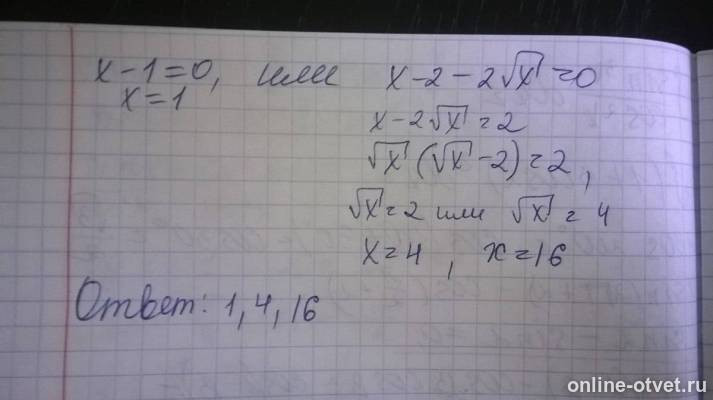 x-1=0, или x-2-2√x=0
x=1
x-2√x=2
√x(√x-2)=2,
√x=2 или √x=4
x=4, x=16
Ответ: 1,4,16
online-otvet.ru